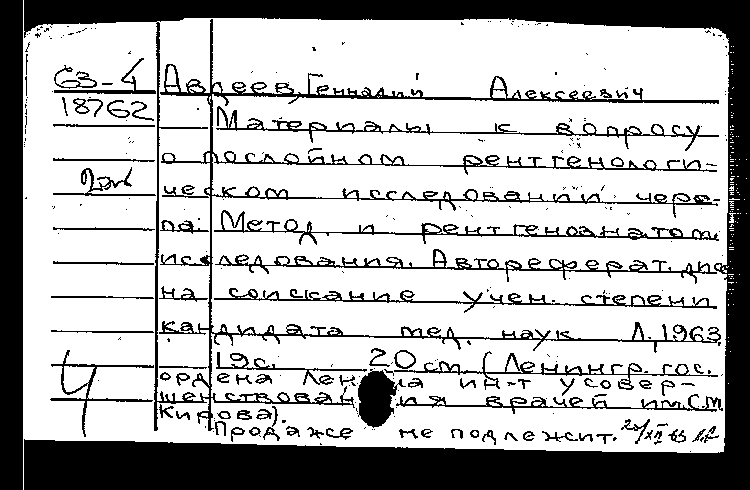 63-4 Авдеев, Геннадий Алексеевич
18762 Материалы к вопросу
о послойном рентгенологи-
ческом исследовании чере-
па: Метод. и рентгеноанатом.
исследования. Автореферат. дис
на соискание учен. степени
кандидата мед. наук. Л., 1963
19с. 20 см. (Ленингр. гос.
ордена Ленина ин-т усовер-
шенствования врачей им. С.М.
Кирова).
Продаже не подлежит.
4